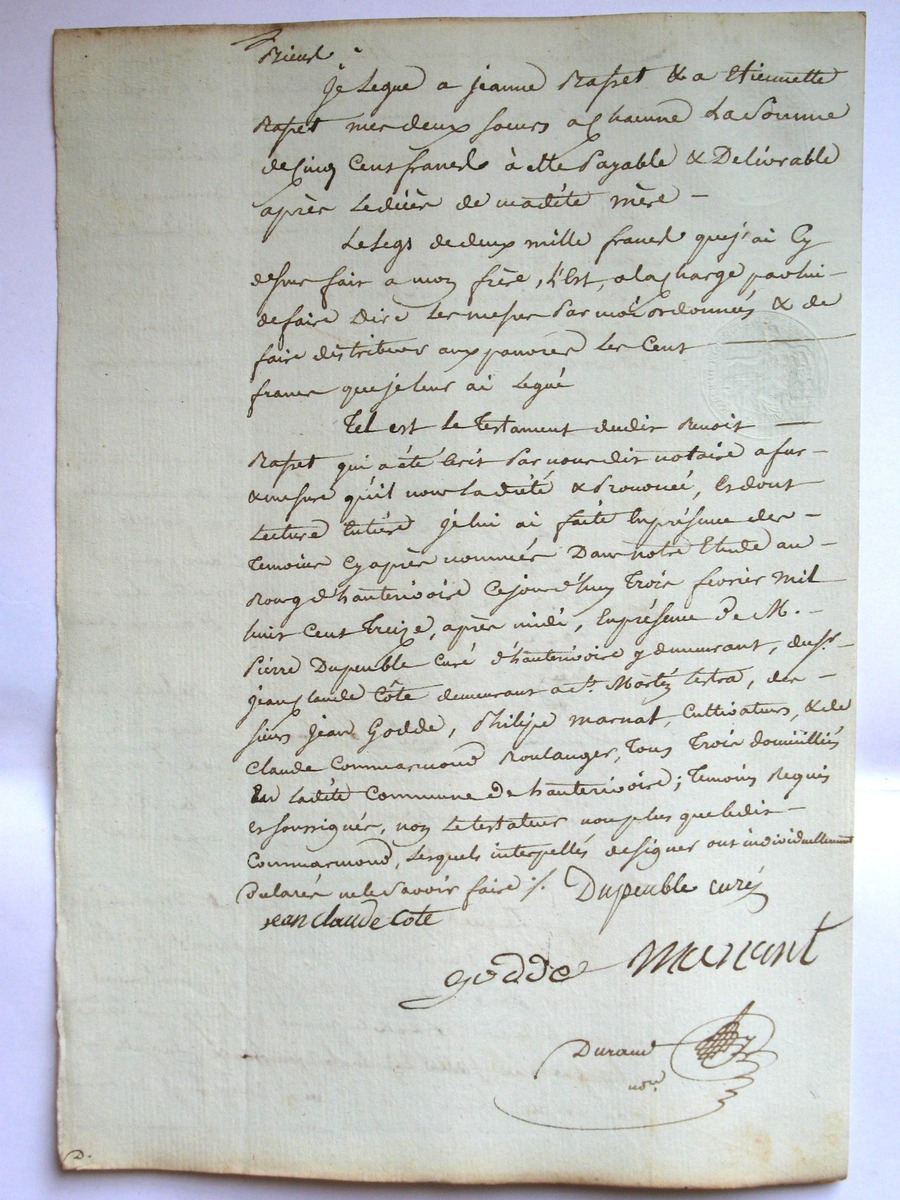 Je Legue a jeanne Rapet & a Etiennette
Rapet mes deux soeurs a Chacune La Somme
de Cinq Cent francs à elle Payable & Delivrable
après Ledécès de madite mère –
Le Legs de deux mille francs que j'ai Cy
desus fait a mon frère, C'Est, a la Charge par lui –
de faire Dire Les messes Par moi ordonnées & de
faire distribuer aux pauvres Les Cent
francs que je leur ai Legué
Tel est Le Testament dudit Benoit –
Rapet qui a été Ecrit Par nous dit notaire a fur –
& mesure qu'il nous La dicté & Prononcé, Et dont
Lecture Entière je lui ai faite En présence des –
Temoins Cy après nommés Dans notre Etude au –
Bourg d'hauterivoire Cejourd'huy Trois fevrier mil
huit Cent Treize, après midi, En présence de M. –
Pierre Dupeuble Curé d'hauterivoire y demeurant, du Sr. –
jean Claude Côte demeurant a St. Martin Lestra, des –
sieurs Jean Godde, Philipe marnat, Cultivateurs, & de
Claude Commarmond Boulanger, Tous Trois domiciliés
En Ladite Commune de hauterivoire; Temoins Requis
et soussignés, non Le testateur non plus que ledit –
Commarmond, Lesquels interpellés de signer ont individuellement
declaré ne le Savoir faire ./. Dupeuble curé
jean claude Cote
godde
Durand
nore.